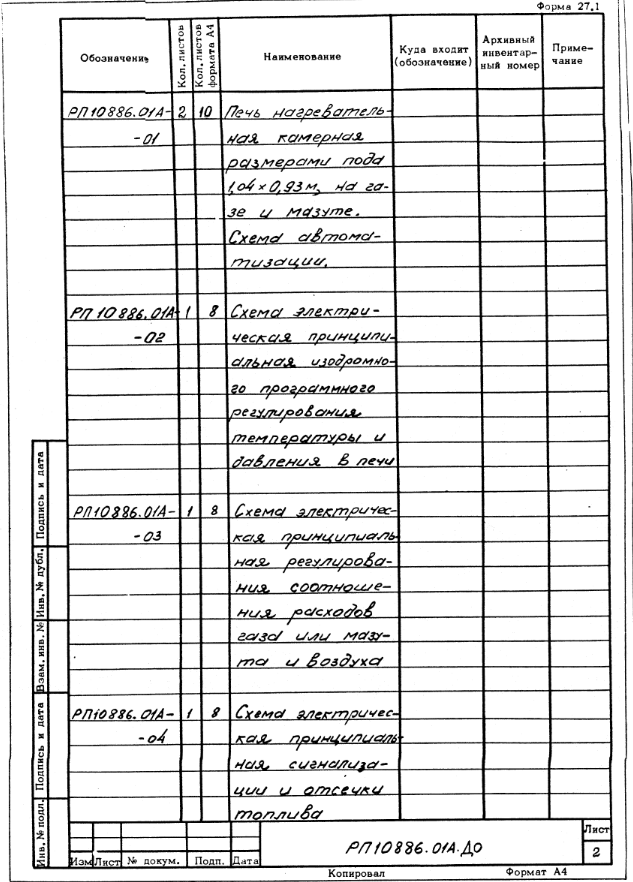 Форма 27.1
Обозначение
Кол. листов
Кол. листов формата А4
Наименование
Куда входит (обозначение)
Архивный инвентар-
ный номер
Приме-
чание
РП10886.01А- 2 10 Печь нагреватель-
-01 ная камерная
размерами пода
1,04×0,93м, на га-
зе и мазуте.
Схема автома-
тизации.
РП10886.01А- 1 8 Схема электри-
-02 ческая принципи-
альная изодромно-
го программного
регулирования
температуры и
давления в печи
РП10886.01А- 1 8 Схема электричес-
-03 кая принципиаль-
ная регулирова-
ния соотноше-
ния расходов
газа или мазу-
та и воздуха
РП10886.01А- 1 8 Схема электричес-
-04 кая принципиаль-
ная сигнализа-
ции и отсечки
топлива
Инв. № подл.
Подпись и дата
Взам. инв. №
Инв. № дубл.
Подпись и дата
Изм Лист № докум. Подп. Дата
РП10886.01А.ДО
Лист
2
Копировал
Формат А4